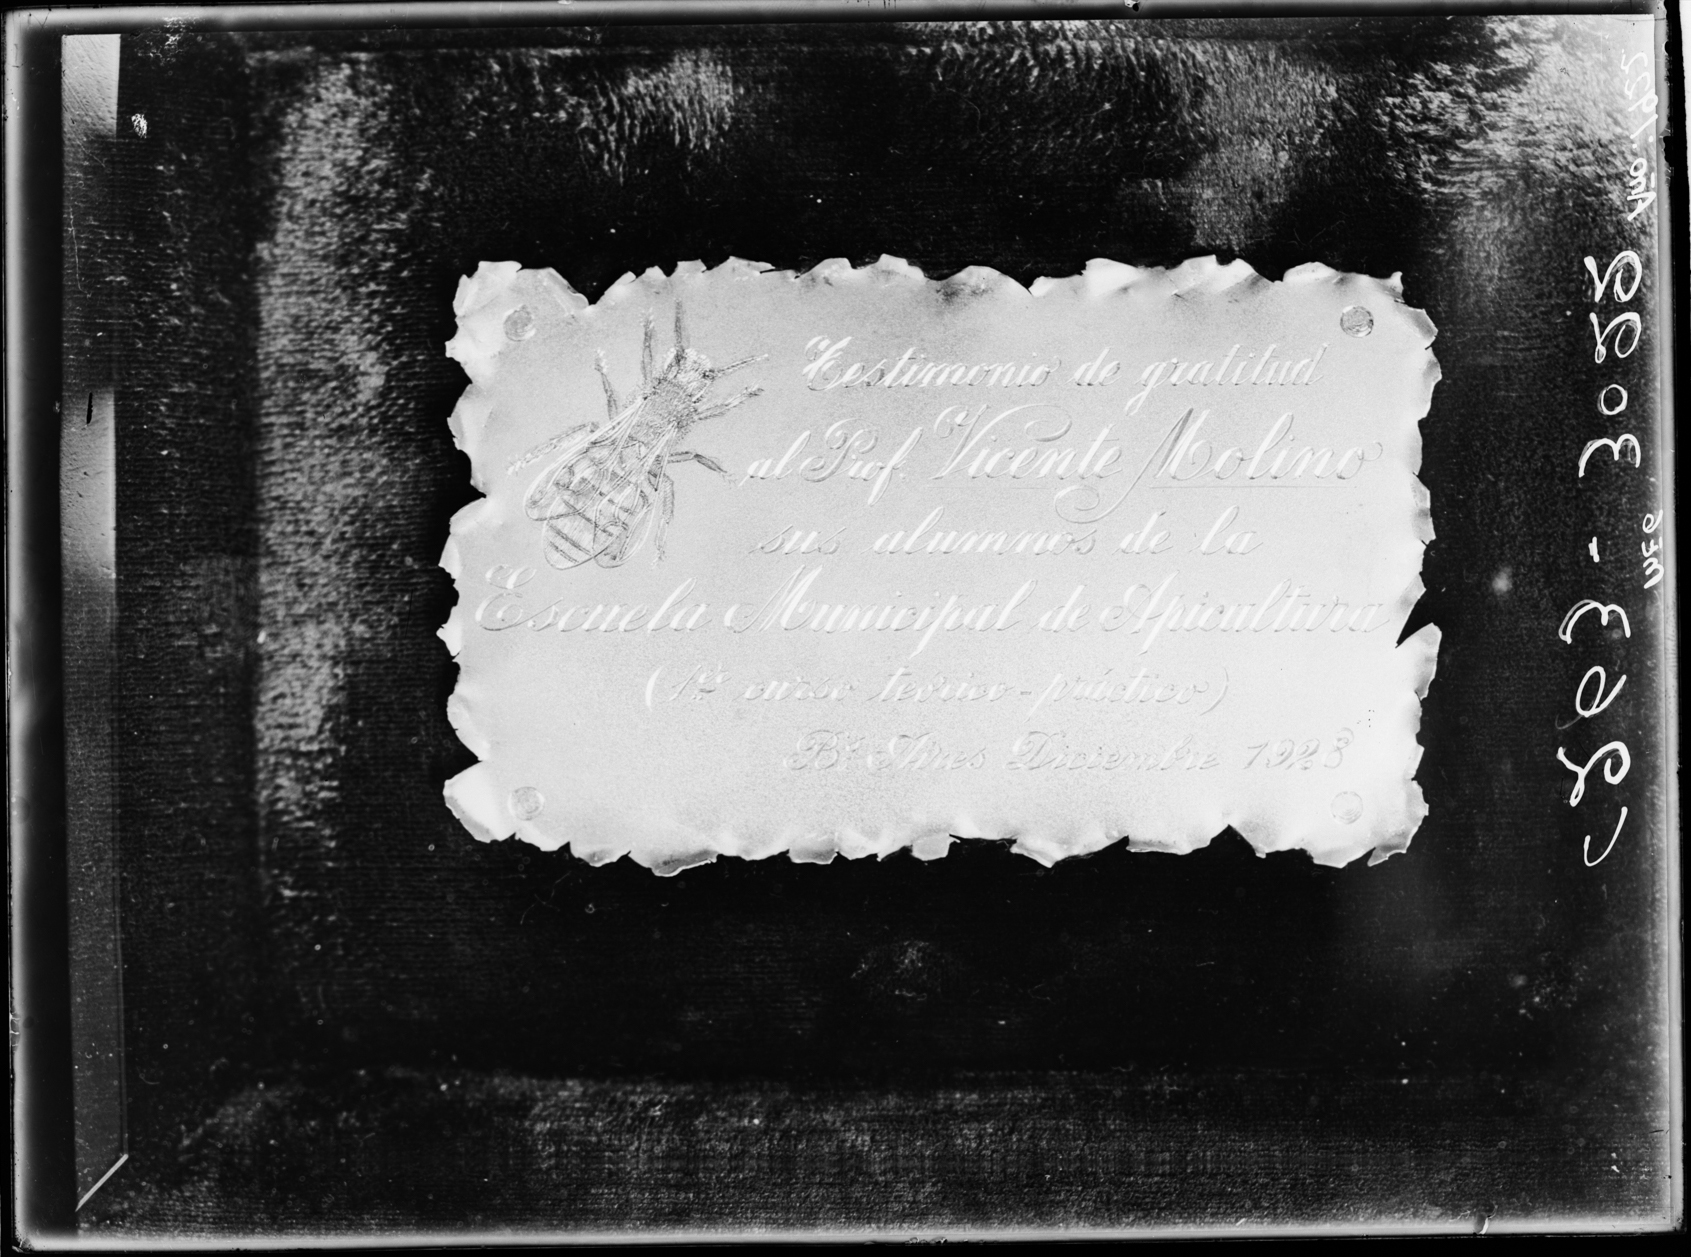 Testimonio de gratitud
al Prof. Vicente Molino
sus alumnos de la
Escuela Municipal de Apicultura
(1er curso teórico-práctico)
Bs. Aires Diciembre 1923
Año-1922
C263-3022